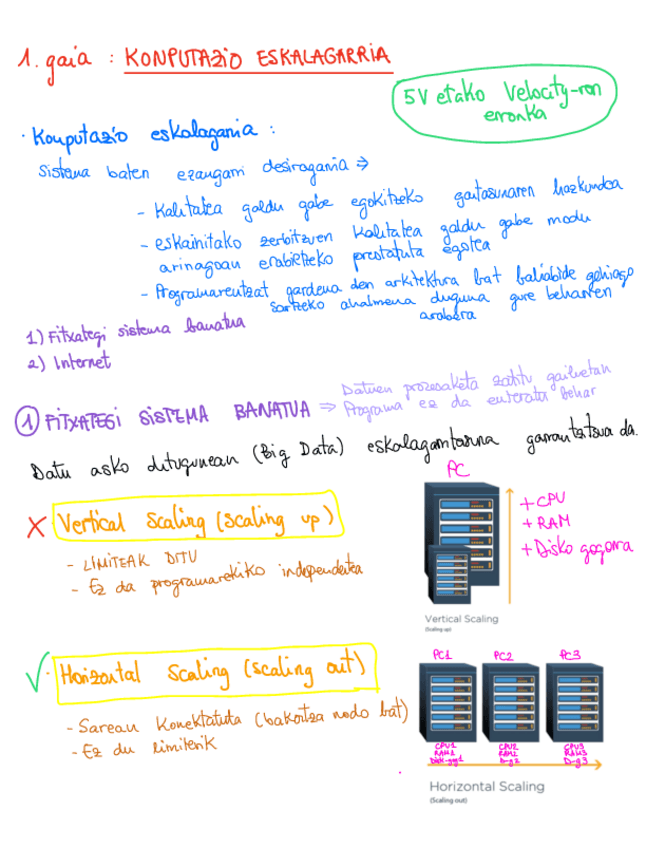 1. gaia : KONPUTAZIO ESKALAGARRIA
5V etako Velocity-ren
erronka
· Konputazio eskalagarria :
Sistema baten ezaugarri desiragarria ⇒
- Kalitatea galdu gabe egokitzeko gaitasunaren hazkundea
- eskainitako zerbitzuen kalitatea galdu gabe modu
arinagoan erabiltzeko prestatuta egotea
- Programarentzat gardena den arkitektura bat baliabide gehiago
sartzeko ahalmena duguna gure beharren
arabera
1) Fitxategi sistema banatua
2) Internet
① FITXATEGI SISTEMA BANATUA ⇒ Datuen prozesaketa zatitu gailuetan
Programa ez da enteratu behar
Datu asko ditugunean (Big Data) eskalagarritasuna garrantzitsua da.
PC
X Vertical Scaling (scaling up)
- LIMITEAK DITU
- Ez da programarekiko independentea
+ CPU
+ RAM
+ Disko gogorra
Vertical Scaling
(Scaling up)
✓ · Horizontal Scaling (scaling out)
- Sarean konektatuta (bakoitza nodo bat)
- Ez du limiterik
PC1 PC2 PC3
CPU1 CPU2 CPU3
RAM1 RAM2 RAM3
Disk-gg1 D-g2 D-g3
Horizontal Scaling
(Scaling out)